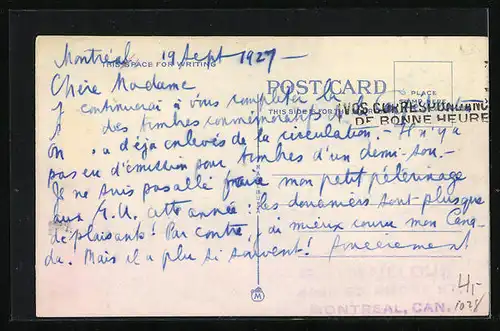 Montréal 19 Sept 1927 —
THIS SPACE FOR WRITING
Chère Madame
POST CARD
PLACE
Je continuerai à vous compléter la
THIS SIDE
VOS CORRESPONDANCE
DE BONNE HEURE
des timbres commémoratifs
On a déjà enlevés de la circulation. — Il n'y a
pas eu d'émission pour timbres d'un demi-sou. —
Je ne suis pas allé faire mon petit pélerinage
aux E.U. cette année : les douaniers sont plus que
déplaisants! Par contre, j'ai mieux connu mon Cana-
da. Mais il a plu si souvent! Sincèrement
M
4,-
1028
MONTREAL, CAN.